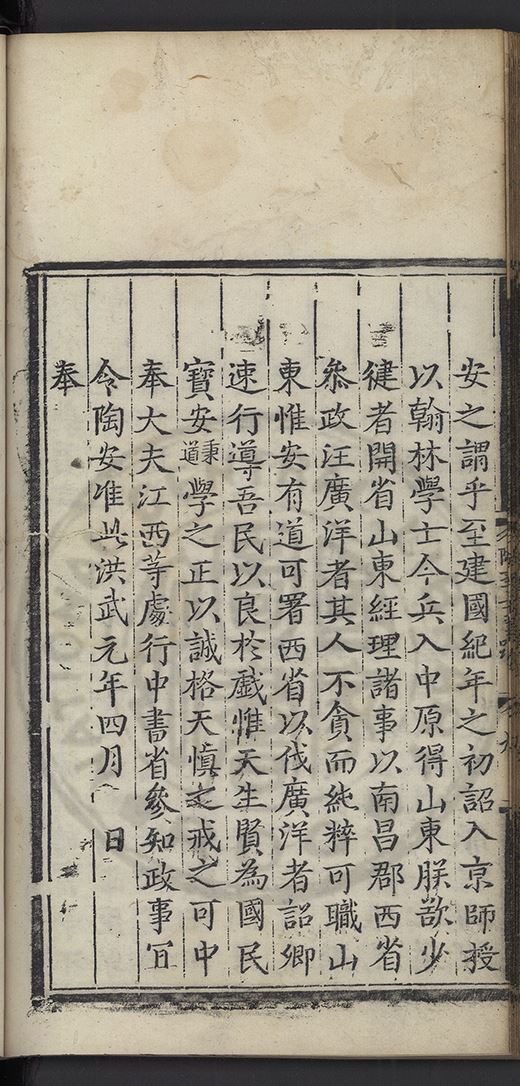 安之謂乎至建國紀年之初詔入京師授
以翰林學士今兵入中原得山東朕欲少
徤者開省山東經理諸事以南昌郡西省
叅政汪廣洋者其人不貪而純粹可職山
東惟安有道可署西省以伐廣洋者詔卿
速行導吾民以良於戲惟天生賢為國民
寳安秉道學之正以誠格天慎之戒之可中
奉大夫江西等處行中書省參知政事宜
令陶安准此洪武元年四月 日
奉